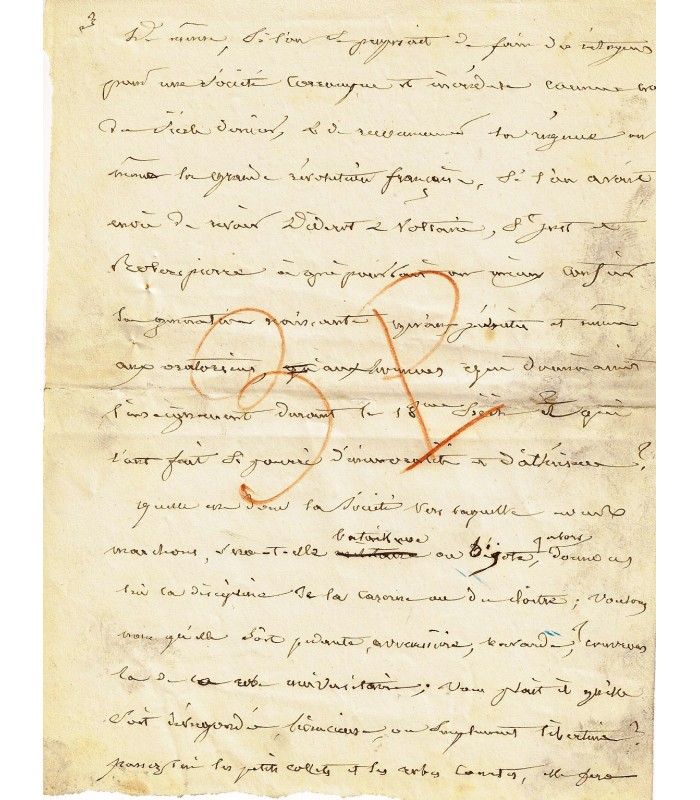 De même, si l'on se proposait de faire des citoyens
pour une Société corrompue et incrédule comme
du siècle dernier, & de recommencer la régence ou
même la grande révolution française, si l'on avait
envie de revoir Diderot & Voltaire, St Just et
Robespierre à qui pourrait on mieux confier
la génération naissante qu'aux jésuites et même
aux oratoriens, aux hommes qui donnaient
l'enseignement durant le 18ème Siècle & qui
l'ont fait si pourri d'immoralité et d'athéisme?
quelle est donc la Société vers laquelle nous
marchons, sera-t-elle ou bigote, donnez
lui la discipline de la caserne ou du cloître; voulons
nous qu'elle soit pédante, avocassière, bavarde, ? couvrons
la de la robe universitaire; vous plait il qu'elle
soit dévergondée, licencieuse, ou simplement libertine?
passez lui les petits collets et les robes courtes, elle fera
3 P